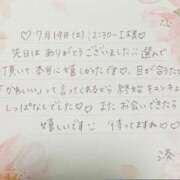 ♡7月19日(土) 2:30~ I様♡
先日はありがとうございました.. 選んで
頂いて本当に嬉しかったです♡。目が合うたびに
「かわいい」って言ってくれるから 終始キュンキュン
しっぱなしでした♡♡ また お会いできたら
嬉しいです 待ってますね♡♡
湊